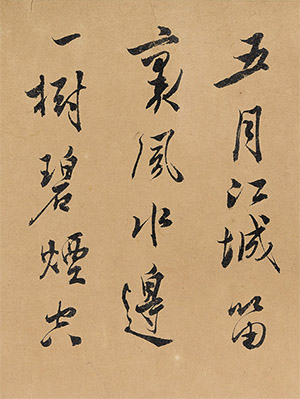 五月江城笛
裏風水邊
一樹碧煙空